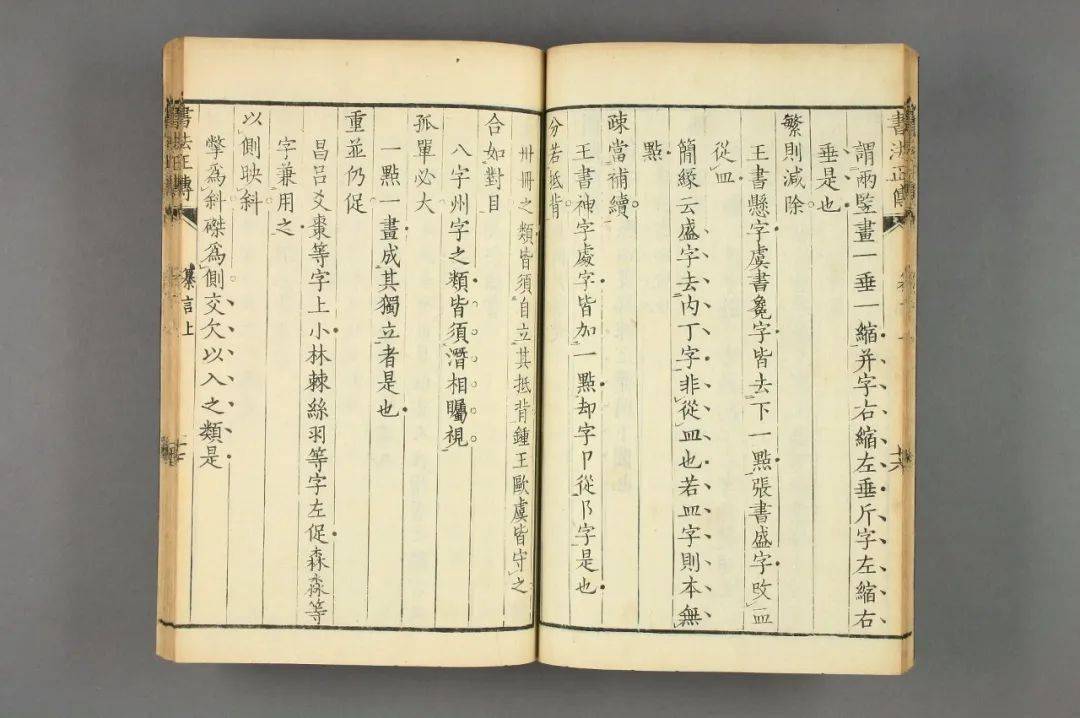 書法正傳
謂兩竪畫一垂一縮并字右縮左垂斤字左縮右
垂是也
繁則減除
王書懸字虞書毚字皆去下一點張書盛字改血
從皿
簡縁云盛字去内丁字非從皿也若皿字則本無
點
疎當補續
王書神字處字皆加一點却字卩從阝字是也
分若抵背
卅冊之類皆須自立其抵背鍾王歐虞皆守之
合如對目
八字州字之類皆須潛相矚視
孤單必大
一點一畫成其獨立者是也
重並仍促
昌呂爻棗等字上小林棘絲羽等字左促森淼等
字兼用之
以側映斜
撆爲斜磔爲側交欠以入之類是
書法正傳
纂言上